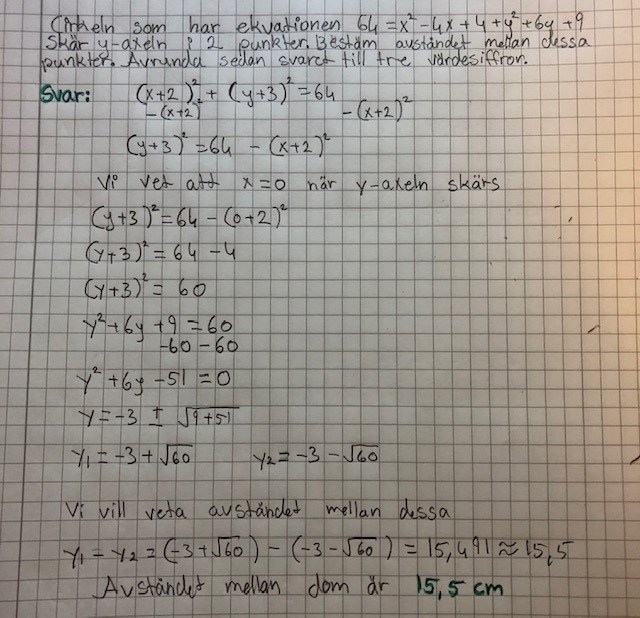 Cirkeln som har ekvationen 64 = x² - 4x + 4 + y² + 6y + 9
Skär y-axeln i 2 punkter. Bestäm avståndet mellan dessa
punkter. Avrunda sedan svaret till tre värdesiffror.
Svar: (x+2)² + (y+3)² = 64
-(x+2)² -(x+2)²
(y+3)² = 64 - (x+2)²
Vi vet att x=0 när y-axeln skärs
(y+3)² = 64 - (0+2)²
(y+3)² = 64 - 4
(y+3)² = 60
y² + 6y + 9 = 60
-60 -60
y² + 6y - 51 = 0
y = -3 ± √9+51
y₁ = -3 + √60 y₂ = -3 - √60
Vi vill veta avståndet mellan dessa
y₁ - y₂ = (-3+√60) - (-3-√60) = 15,491 ≈ 15,5
Avståndet mellan dom är 15,5 cm